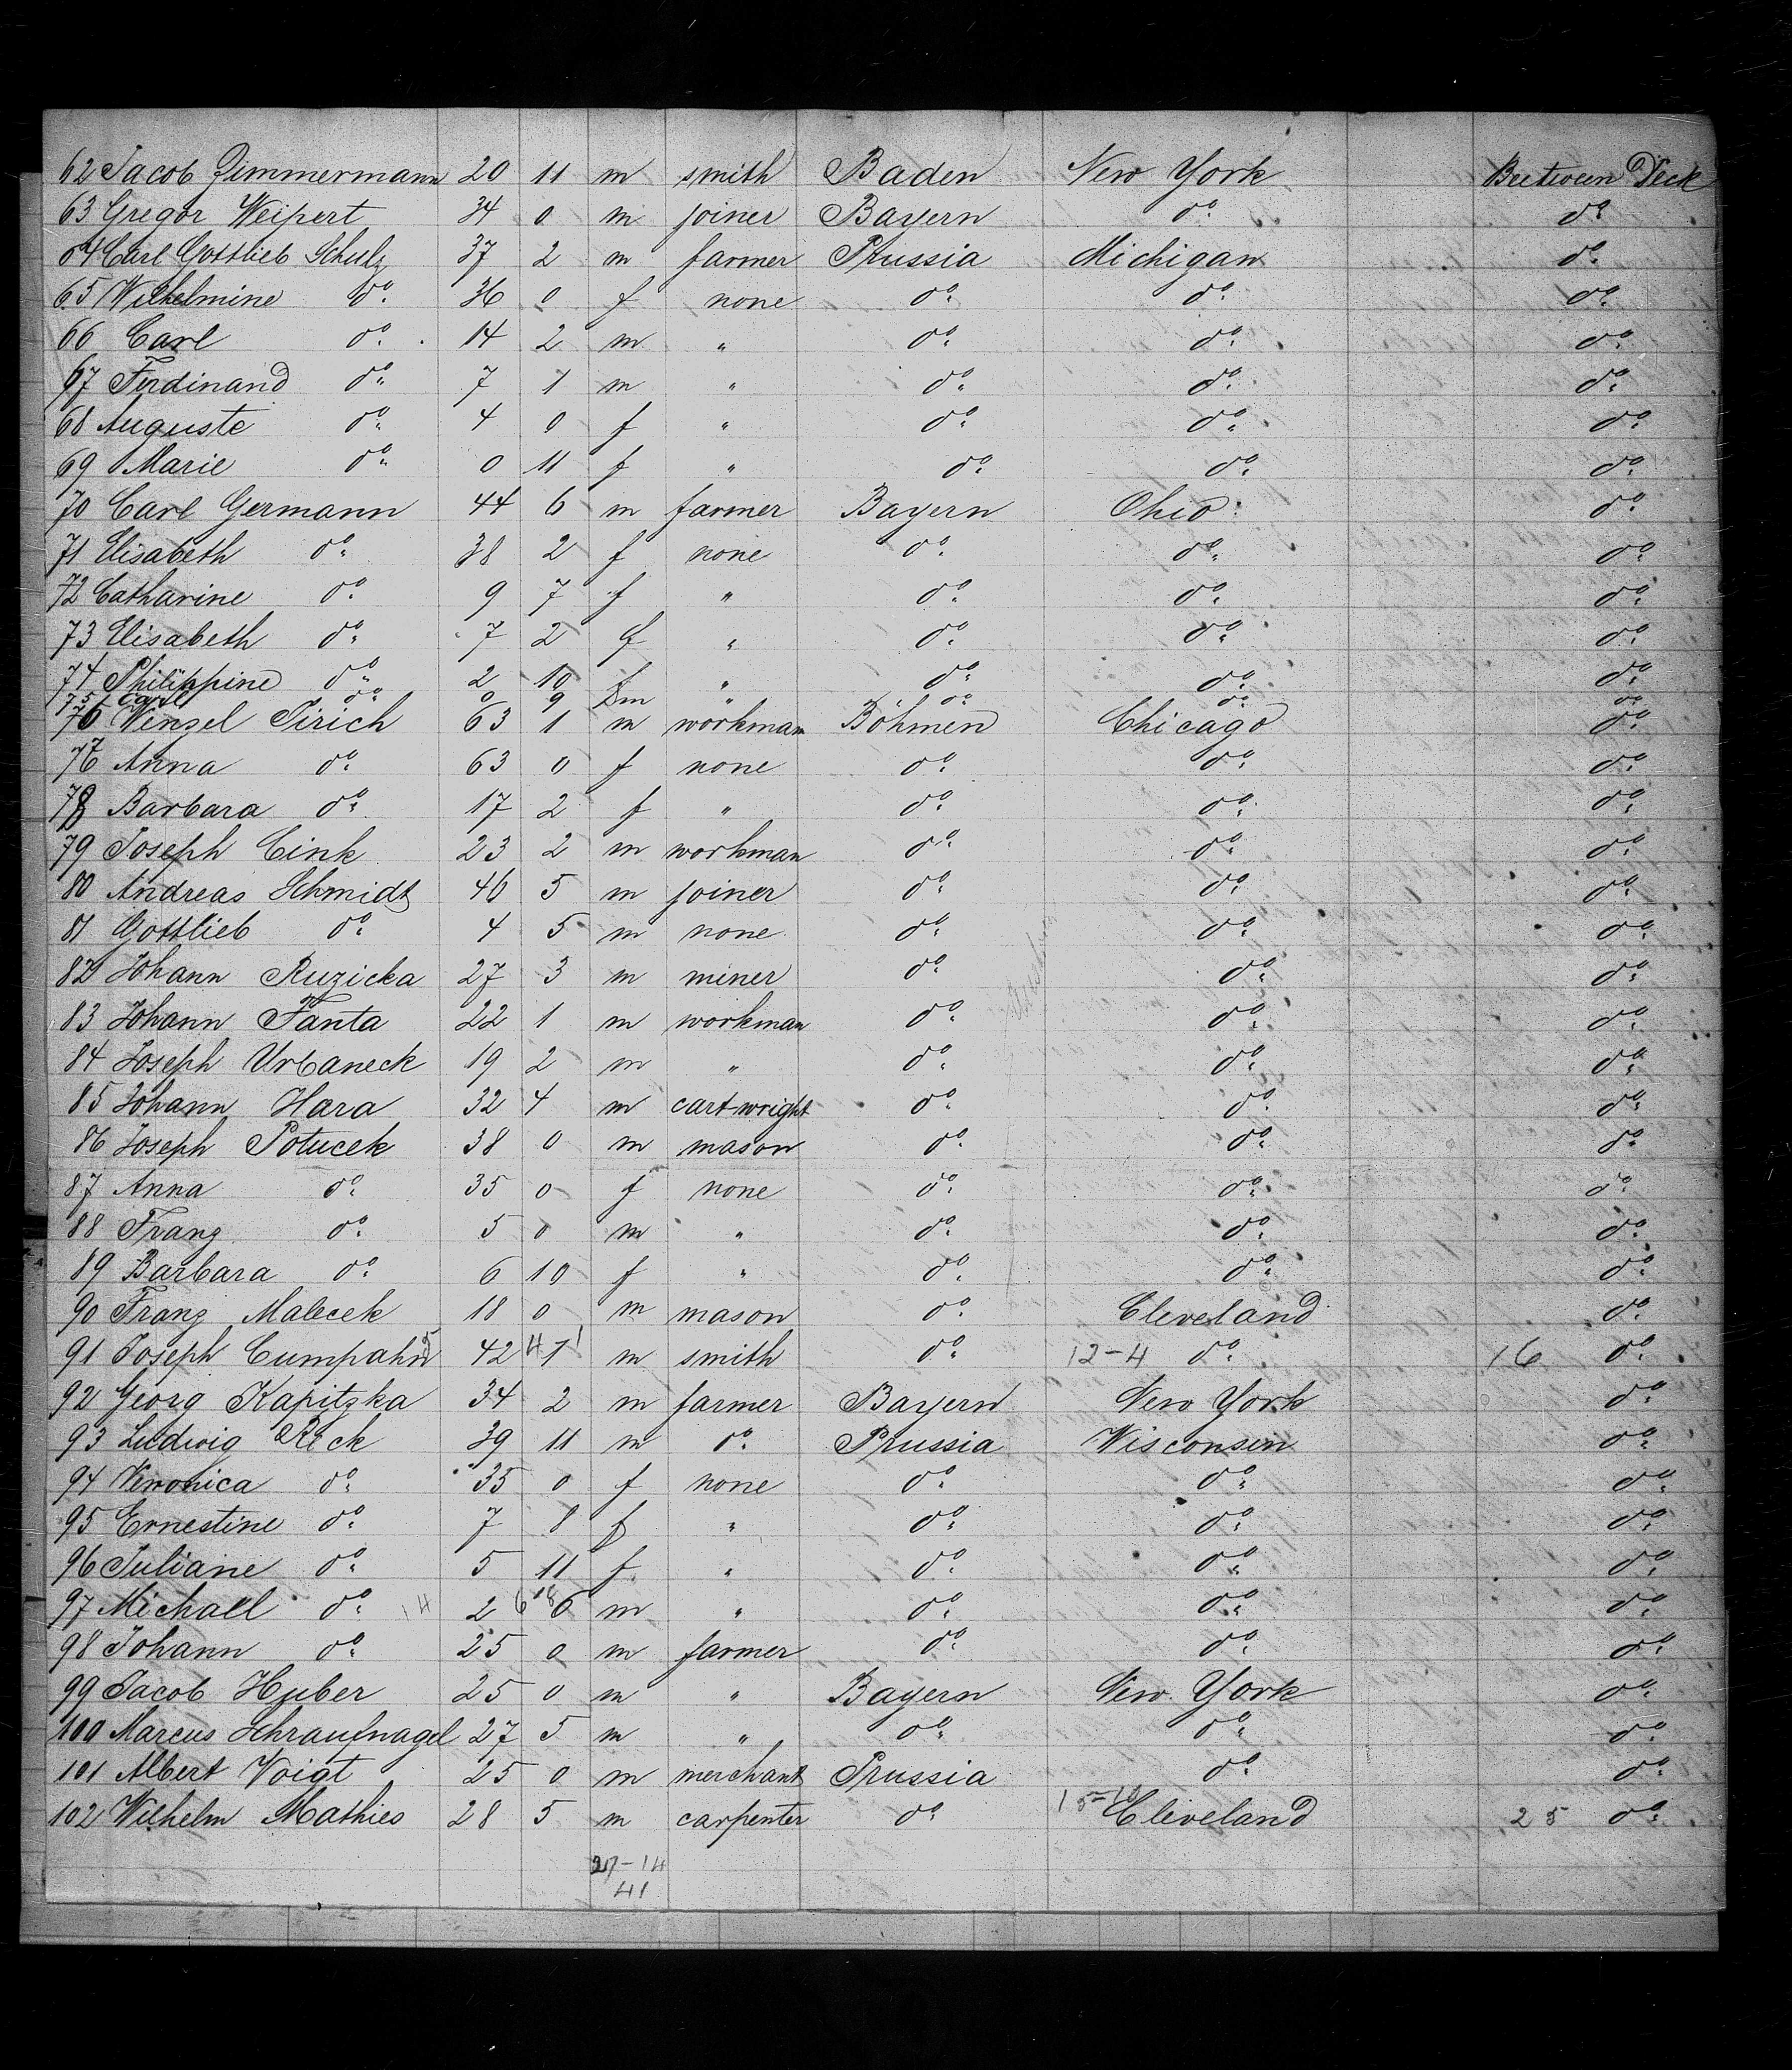 62 Jacob Zimmermann 20 11 m smith Baden New York Beetween Deck
63 Gregor Weipert 34 0 m joiner Bayern do. do.
64 Carl Gottlieb Schulz 37 2 m farmer Prussia Michigan do.
65 Wilhelmine do. 36 0 f none do. do. do.
66 Carl do. 14 2 m " do. do. do.
67 Ferdinand do. 7 1 m " do. do. do.
68 Auguste do. 4 0 f " do. do. do.
69 Marie do. 0 11 f " do. do. do.
70 Carl Germann 44 6 m farmer Bayern Ohio do.
71 Elisabeth do. 38 2 f none do. do. do.
72 Catharine do. 9 7 f " do. do. do.
73 Elisabeth do. 7 2 f " do. do. do.
74 Philippine do. 2 10 f " do. do. do.
75 Carl do. 0 9 m " do. do. do.
76 Wenzel Jirich 63 1 m workman Böhmen Chicago do.
77 Anna do. 63 0 f none do. do. do.
78 Barbara do. 17 2 f " do. do. do.
79 Joseph Cink 23 2 m workman do. do. do.
80 Andreas Schmidt 46 5 m joiner do. do. do.
81 Gottlieb do. 4 5 m none do. do. do.
82 Johann Ruzicka 27 3 m miner do. do. do.
83 Johann Fanta 22 1 m workman do. do. do.
84 Joseph Urbaneck 19 2 m " do. do. do.
85 Johann Hara 32 4 m cartwright do. do. do.
86 Joseph Potucek 38 0 m mason do. do. do.
87 Anna do. 35 0 f none do. do. do.
88 Franz do. 5 0 m " do. do. do.
89 Barbara do. 6 10 f " do. do. do.
90 Franz Malecek 18 0 m mason do. Cleveland do.
91 Joseph Cumpahn 42 1 m smith do. 12-4 do. 16 do.
92 Georg Kapitzka 34 2 m farmer Bayern New York do.
93 Ludwig Reck 39 11 m do. Prussia Wisconsin do.
94 Veronica do. 35 0 f none do. do. do.
95 Ernestine do. 7 8 f " do. do. do.
96 Juliane do. 5 11 f " do. do. do.
97 Michael do. 14 2 6 m " do. do. do.
98 Johann do. 25 0 m farmer do. do. do.
99 Jacob Huber 25 0 m " Bayern New York do.
100 Marcus Schraufnagel 27 5 m " do. do. do.
101 Albert Voigt 25 0 m merchant Prussia do. do.
102 Wilhelm Mathies 28 5 m carpenter do. 15-10 Cleveland 25 do.
27-14
41